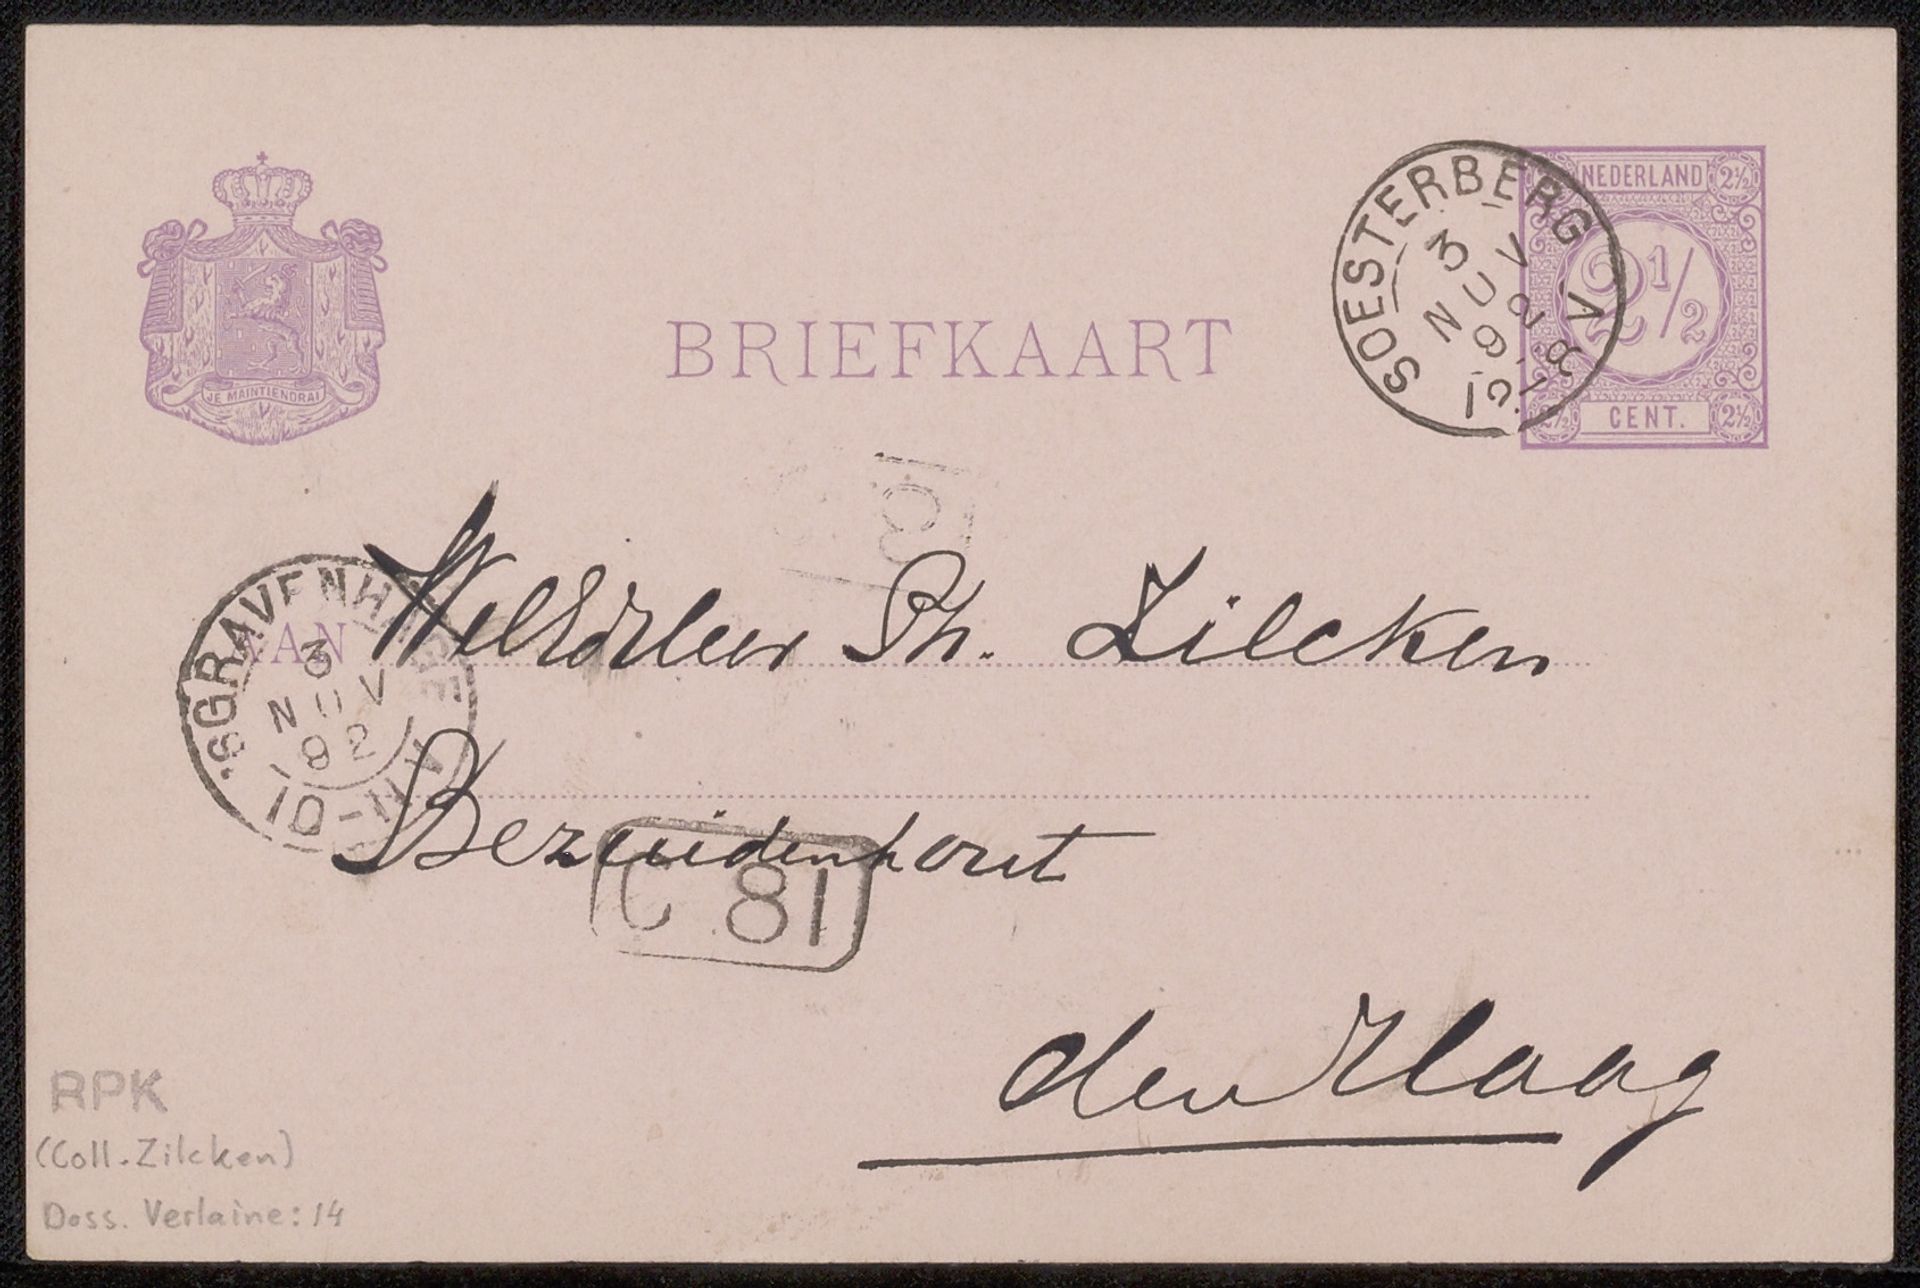 NEDERLAND 2½
2½
JE MAINTIENDRAI
CENT. 2½
2½
BRIEFKAART
SOESTERBERG
3 NOV 92
V 8-10
'SGRAVENHAGE
3
NOV
92
10-11
AAN WelEdelen Ph. Zilcken
Bezuidenhout
C 81
den Haag
RPK
(Coll. Zilcken)
Doss. Verlaine: 14